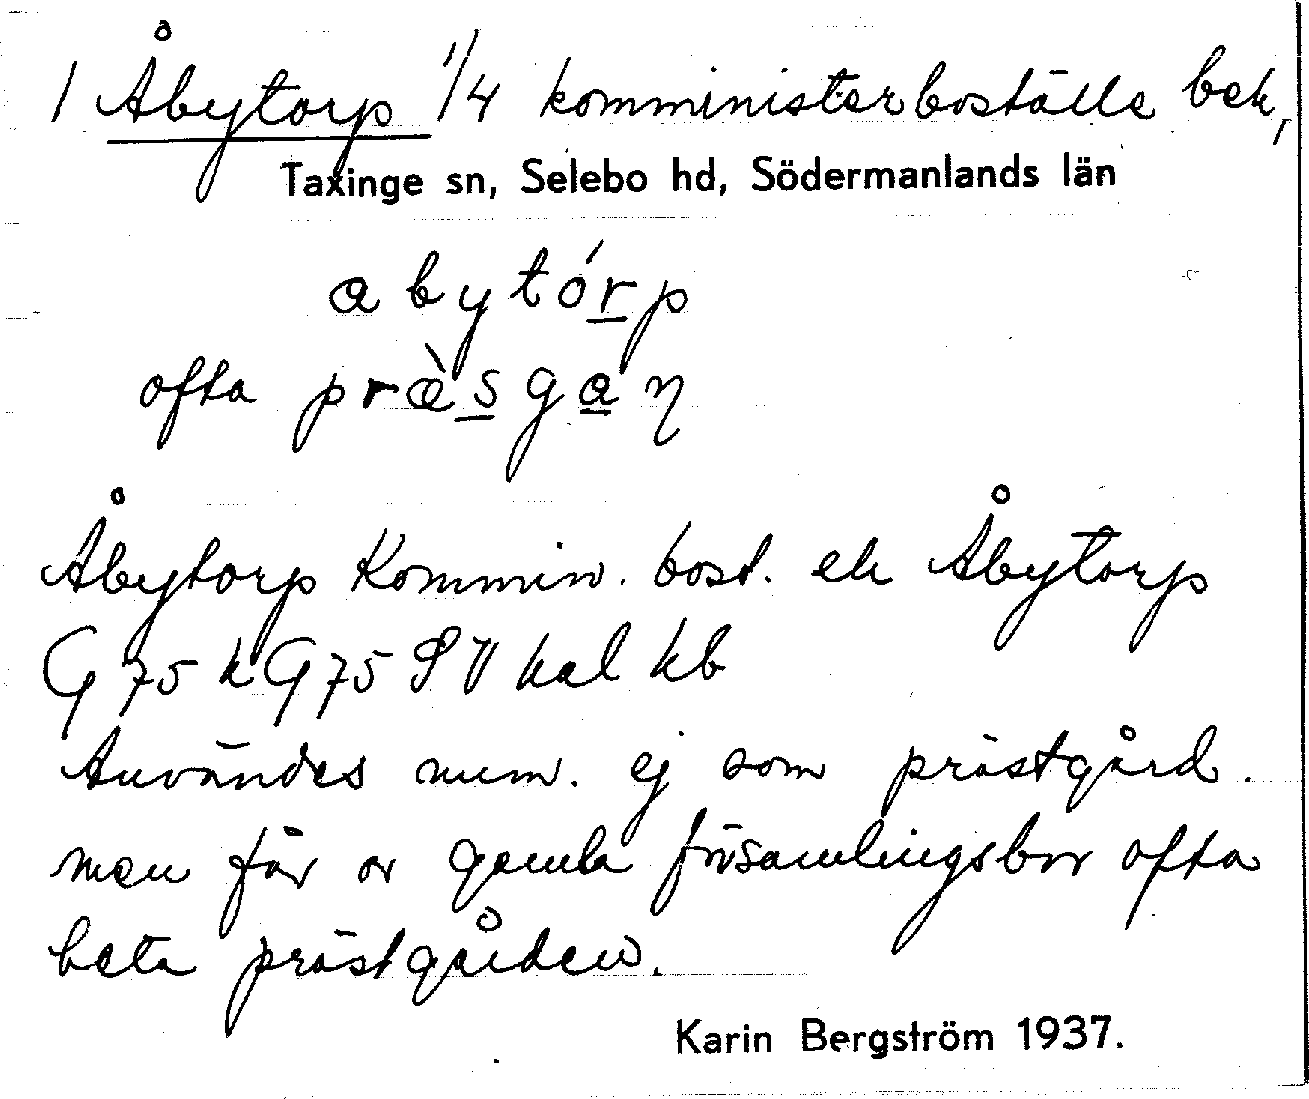 1 Åbytorp 1/4 komministerboställe bek,
Taxinge sn, Selebo hd, Södermanlands län
abytórp
ofta præ̀sgaɳ
Åbytorp Kommin. bost. ek Åbytorp
G 75 k G 75 SV kal kb
Användes num. ej som prästgård.
men får av gamla församlingsbor ofta
heta prästgården.
Karin Bergström 1937.